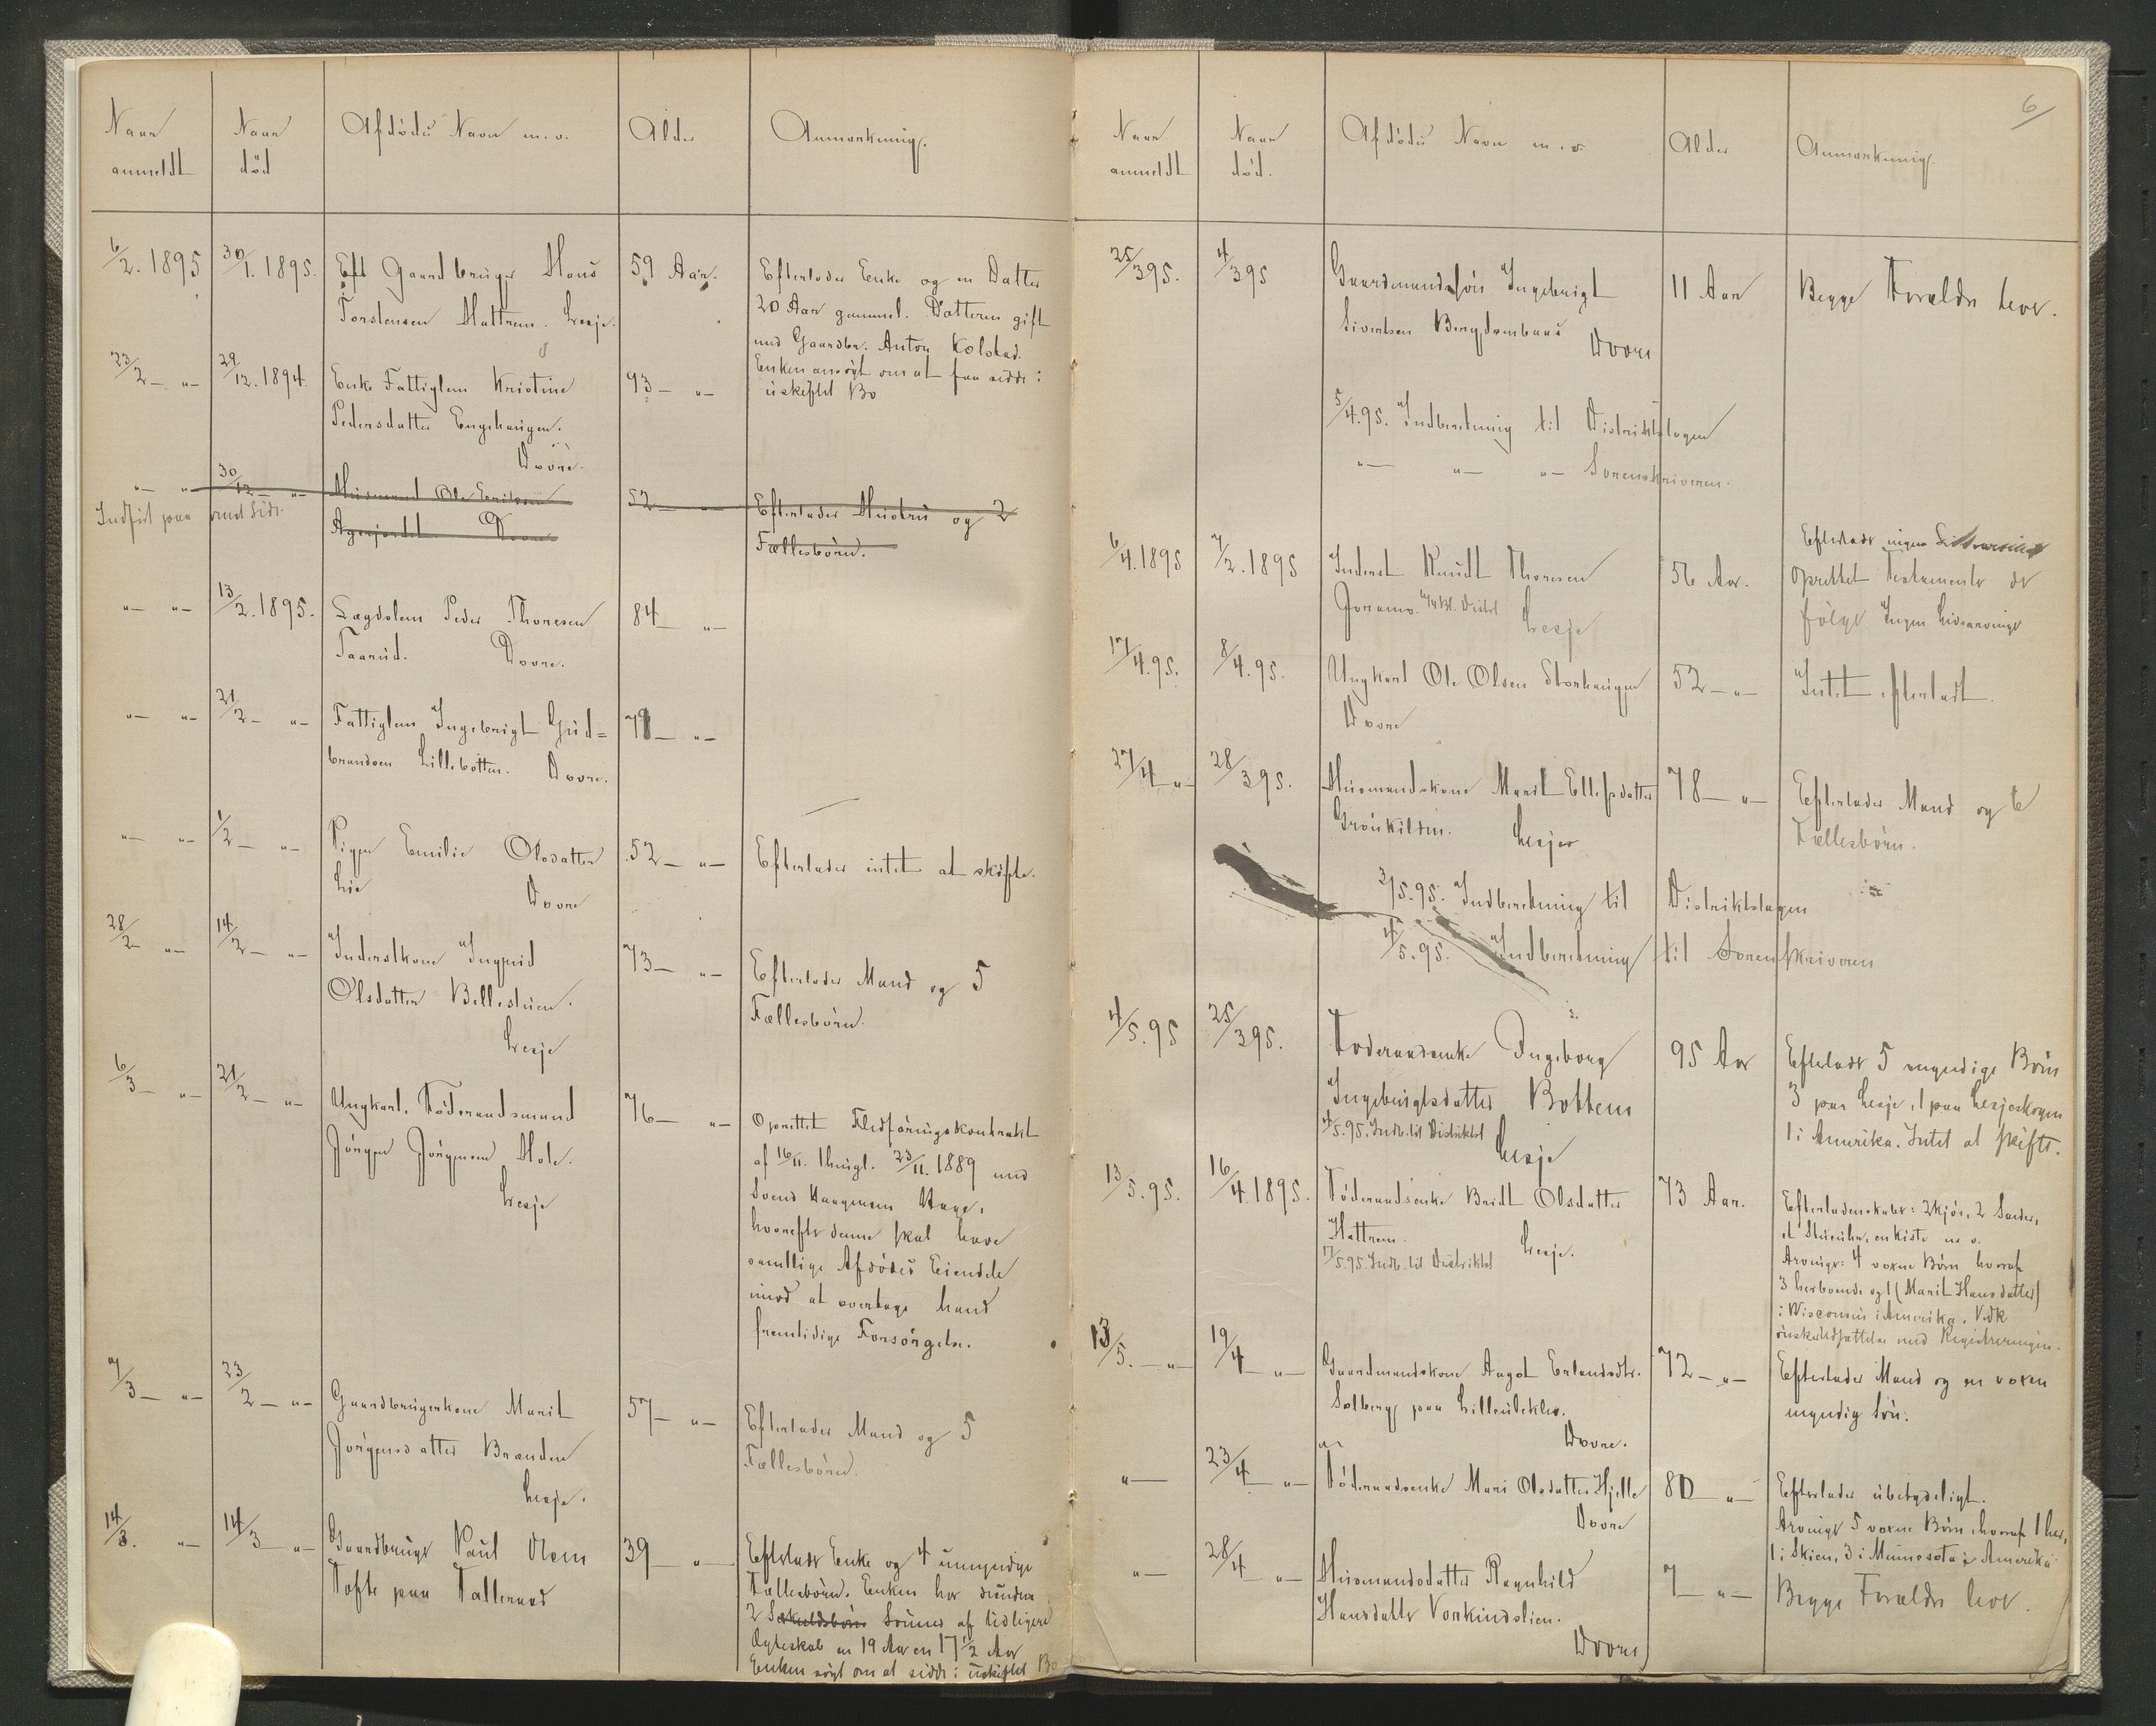 Naar anmeldt | Naar död | Afdödes Navn m.v. | Alder | Anmærkning.
6/2. 1895 | 30/1. 1895. | Eft Gaardbruger Hans | 59 Aar. | Efterlader Enke og en Datter
Torstensen Hattrem. Lesje. | 20 Aar gammel. Datteren gift
med Gaardbr. Anton Kolstad.
Enken ansøgt om at faa sidde i
uskiftet Bo
23/2 — „ — | 29/12. 1894. | Enke Fattiglem Kristine | 93 — „ —
Pedersdatter Enghaugen.
Dovre.
„ — „ — | 30/12 — „ — | Husmand Ole Eriksen | 52 — „ — | Efterlader Hustru og 2
Indført paa omst Side.
Agerjordet Dovre | Fællesbörn.
„ — „ — | 13/2. 1895. | Lægdslem Peder Thoresen | 84 — „ —
Taarud. Dovre.
„ — „ — | 21/2 — „ — | Fattiglem Ingebrigt Gud= | 79 — „ —
brandsen Lillebotten. Dovre.
„ — „ — | 1/2 — „ — | Pigen Emilie Olsdatter | 52 — „ — | Efterlader intet at skifte.
Lie Dovre
28/2 — „ — | 14/2 — „ — | Inderstkone Ingrid | 73 — „ — | Efterlader Mand og 5
Olsdatter Bellestuen. | Fællesbörn.
Lesje
6/3 — „ — | 21/2 — „ — | Ungkarl, Föderaadsmand | 76 — „ — | Oprettet Fledføringskontrakt
Jörgen Jörgensen Hole. | af 16/11. thingl. 23/11. 1889 med
Lesje | Svend Haagensen Hage,
hvorefter denne skal have
samtlige Afdødes Eiendele
imod at overtage hans
fremtidige Forsörgelse.
7/3 — „ — | 23/2 — „ — | Gaardbrugerkone Marit | 57 — „ — | Efterlader Mand og 5
Jörgensdatter Branden | Fællesbörn.
Lesje.
14/3. „ — | 14/3 — „ — | Gaardbruger Paul Olsen | 39 — „ — | Efterlader Enke og 4 umyndige
Tofte paa Talleraas | Fællesbörn. Enken har desuden
2 Særkuldsbörn Sönner af tidligere
Ægteskab en 19 Aar en 17½ Aar
Enken søgt om at sidde i uskiftet Bo
6
Naar anmeldt | Naar död. | Afdödes Navn m.v. | Alder | Anmærkning.
25/3 95. | 4/3 95 | Gaardmandssön Ingebrigt | 11 Aar | Begge Forældre lever.
Sivertsen Bergdombaas
Dovre
5/4. 95. Indberetning til Distriktslægen
„ — „ — „ — Sorenskriveren.
6/4. 1895 | 7/2. 1895 | Inderst Knudt Thoresen | 56 Aar. | Efterlader ingen Livsarvinger
Joramo. Lesje | oprettet Testamente der
følger Ingen Livsarvinger
17/4. 95. | 8/4. 95. | Ungkarl Ole Olsen Storhaugen | 52 — „ — | Intet efterladt.
Dovre
27/4 — „ — | 28/3 95. | Husmandskone Marit Ellefsdatter | 78 — „ — | Efterlader Mand og 6
Grönkilden. Lesje | Fællesbörn.
3/5. 95. Indberetning til Distriktslægen
4/5. 95. Indberetning til Sorenskriveren
4/5. 95 | 25/3 95. | Föderaadsenke Ingeborg | 95 Aar | Efterlader 5 myndige Börn
Ingebrigtsdatter Bottem | 3 paa Lesje, 1 paa Lesjeskogen
4/5. 95. Indb. til Distriktsl | 1 i Amerika. Intet at skifte.
Lesje
13/5. 95. | 16/4. 1895. | Föderaadsenke Britt Olsdatter | 73 Aar. | Efterladenskaber: 2 Kjör, 2 Sauder,
Hattrem. Lesje. | et Stueuhr, en Kiste m. v.
7/5. 95. Indb. til Distriktsl | Arvinger: 4 voxne Börn hvoraf
3 herboende og 1 (Marit Hansdatter)
i Wisconsin i Amerika. Vedk
ønskes Udsættelse med Registreringen.
13/5. — „ — | 19/4 — „ — | Gaardmandskone Aagot Erlandsdtr. | 72 — „ — | Efterlader Mand og en voxen
Solberg paa Lilleulekleiv. | myndig Sön.
Dovre.
„ — | 23/4 — „ — | Föderaadsenke Mari Olsdatter Hjelle | 80 — „ — | Efterlader ubetydeligt.
Dovre | Arvinger 5 voxne Börn, hvoraf 1 her,
1 i Skien, 3 i Minnesota i Amerika
„ — | 28/4 — „ — | Husmandsdatter Ragnhild | 7 — „ — | Begge Forældre lever.
Hansdatter Vorkindslien.
Dovre